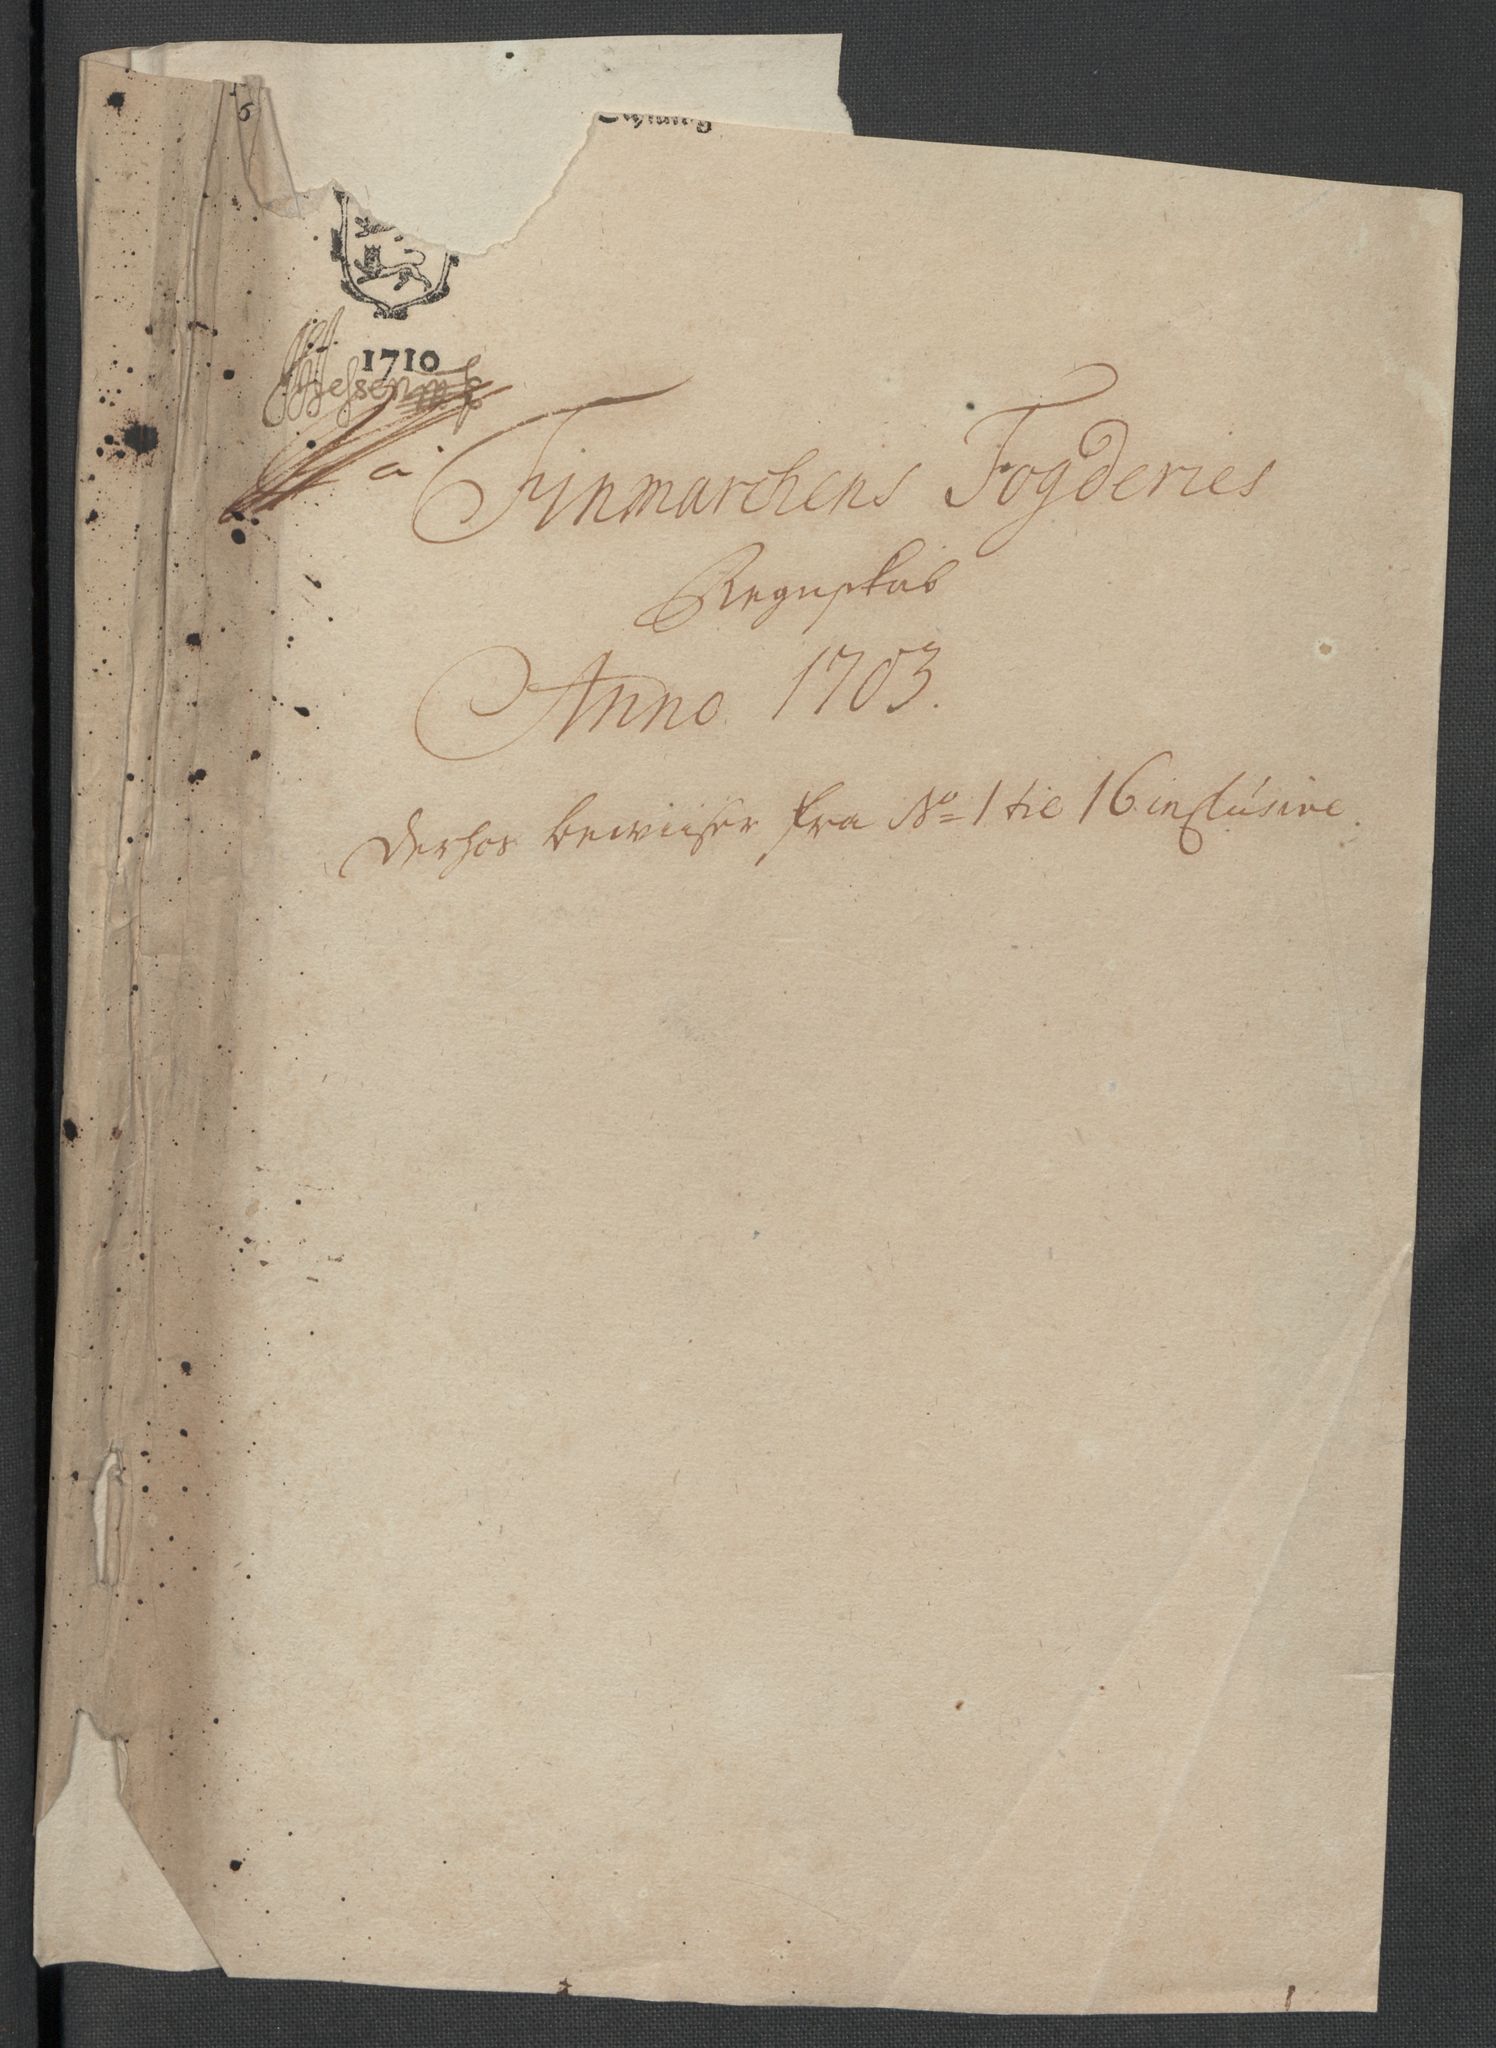 6
1710
Finmarchens Fogderies
Regnskab
Anno 1703.
Derhos bewiiser fra No 1 til 16 inclusive.